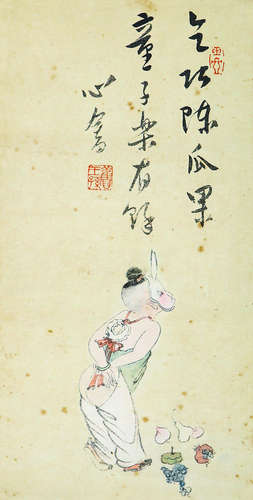 乞巧陈瓜果
童子樂有餘
心畬